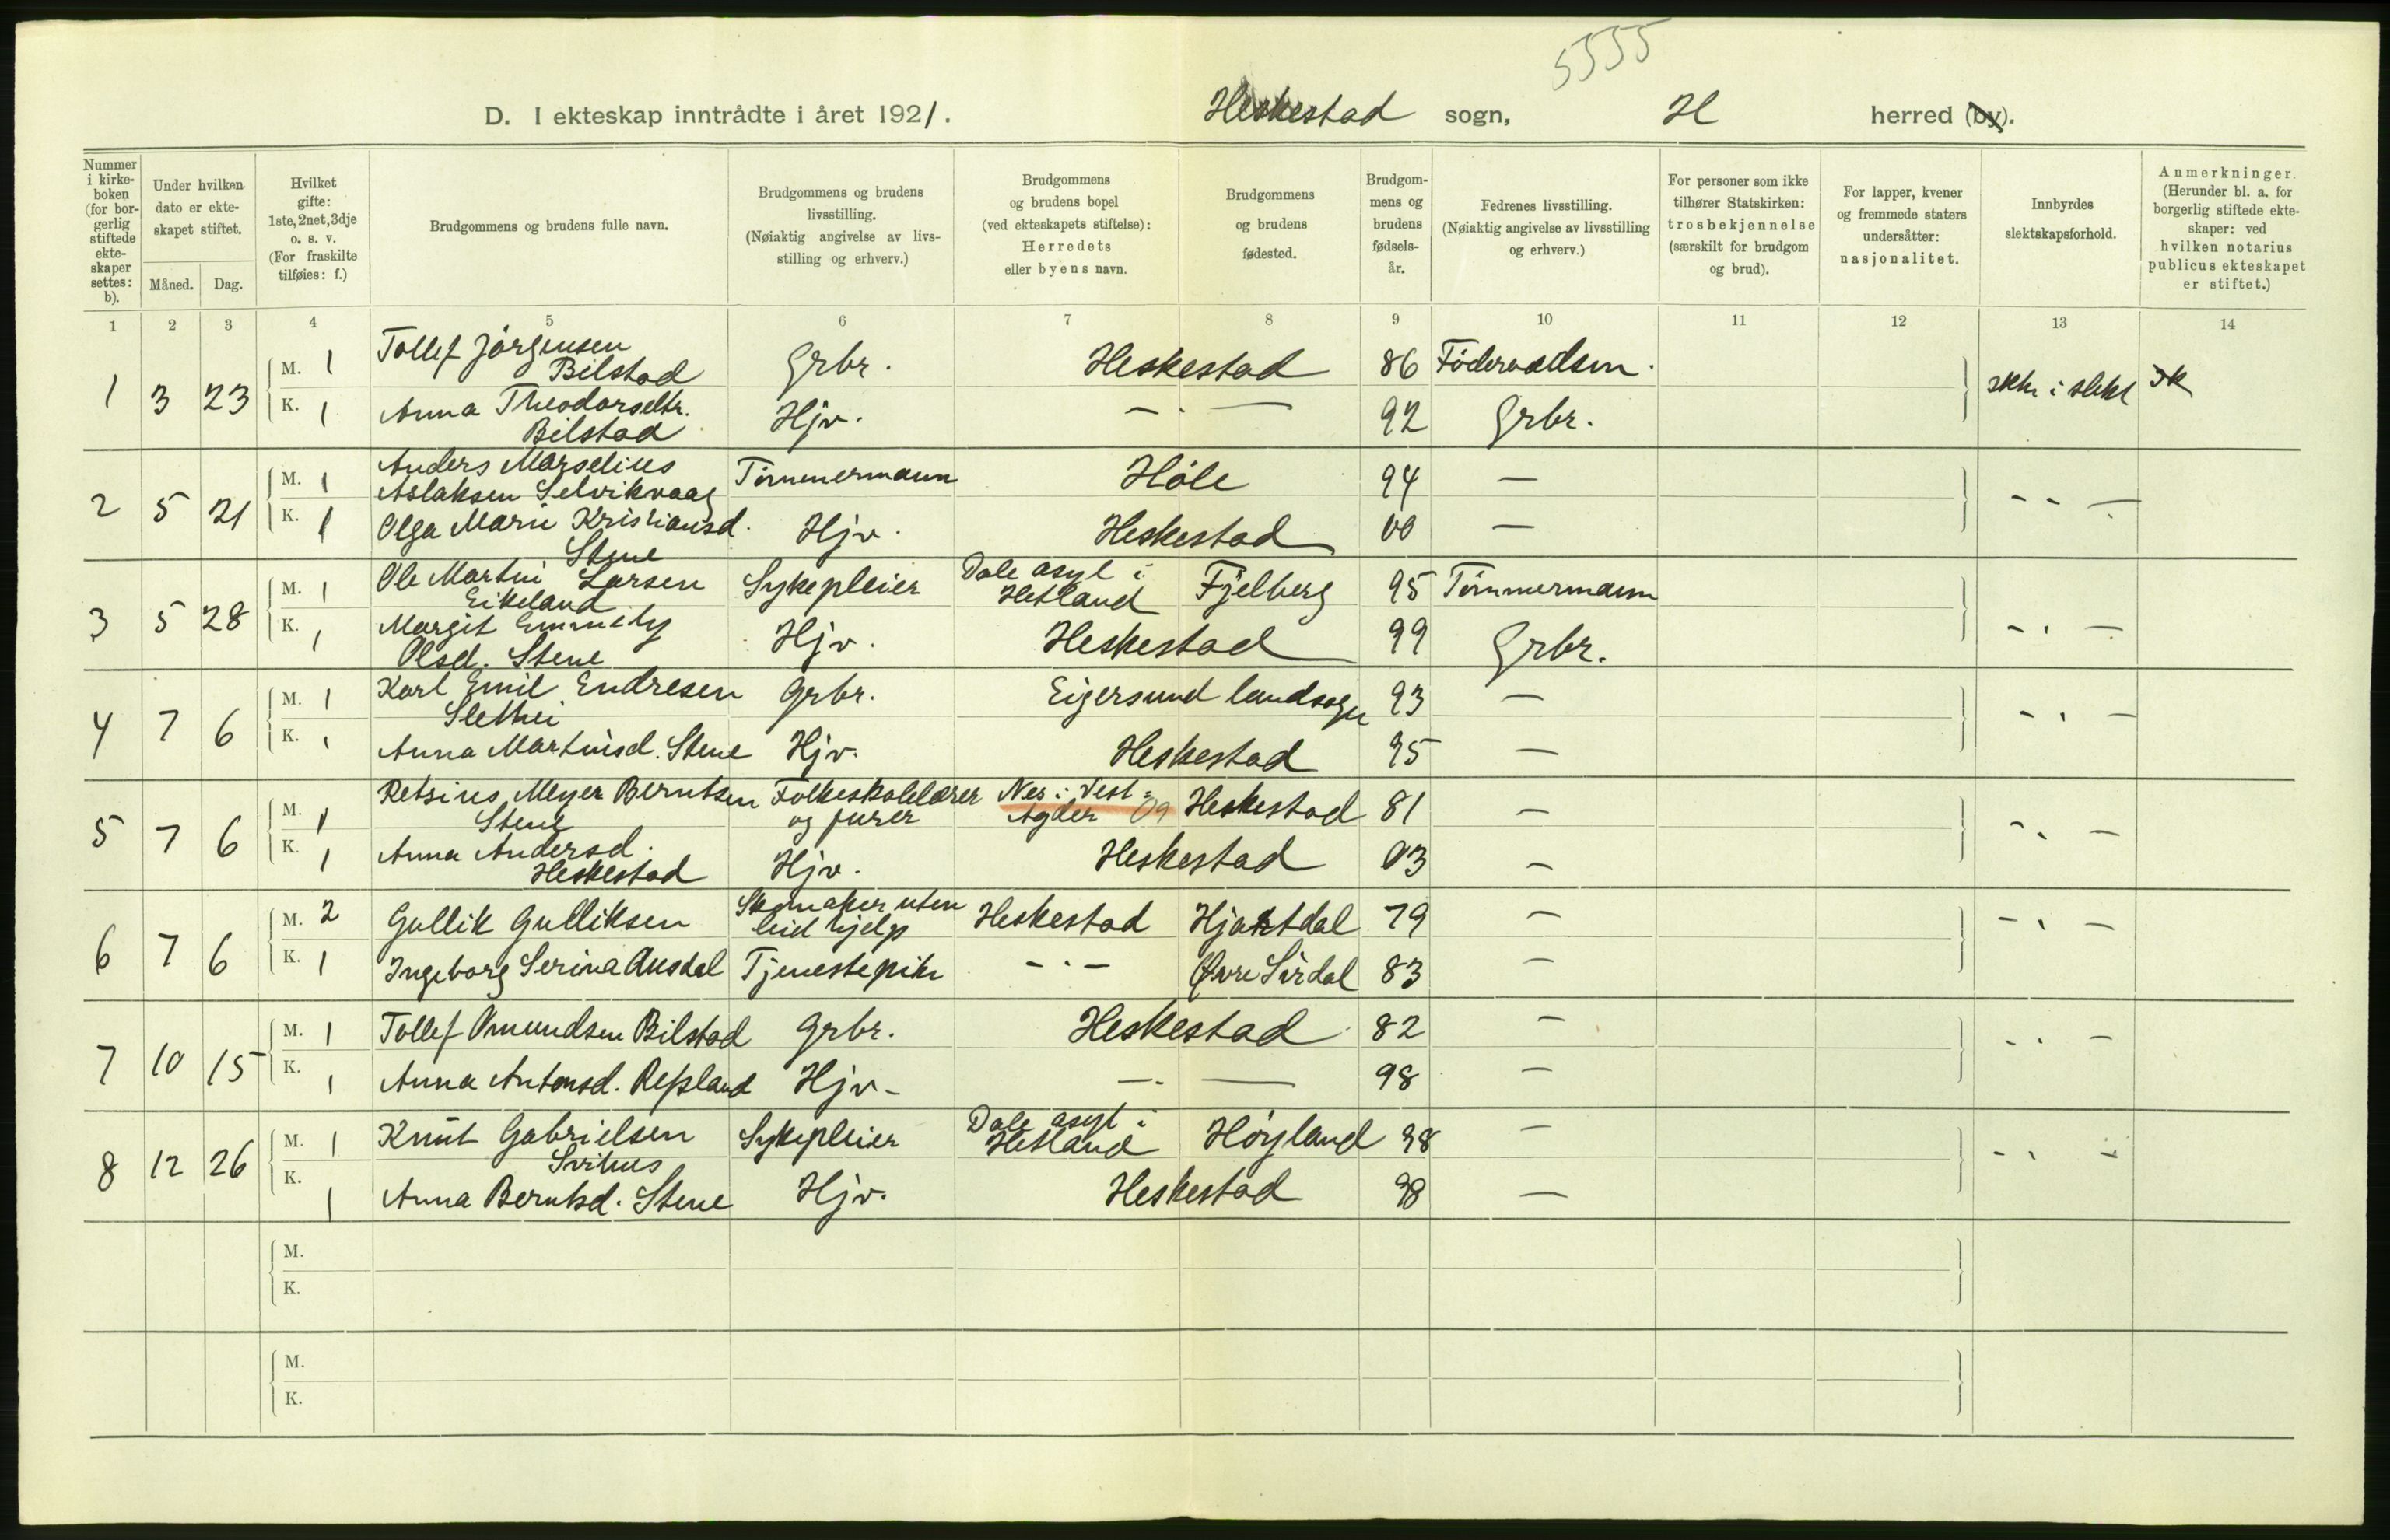 5555
D. I ekteskap inntrådte i året 1921. Heskestad sogn, H herred (by).
Nummer i kirkeboken (for borgerlig stiftede ekteskaper settes: b).
Under hvilken dato er ekteskapet stiftet.
Måned. Dag.
Hvilket gifte: 1ste, 2net, 3dje o. s. v. (For fraskilte tilføies: f.)
Brudgommens og brudens fulle navn.
Brudgommens og brudens livsstilling. (Nøiaktig angivelse av livsstilling og erhverv.)
Brudgommens og brudens bopel (ved ekteskapets stiftelse): Herredets eller byens navn.
Brudgommens og brudens fødested.
Brudgommens og brudens fødselsår.
Fedrenes livsstilling. (Nøiaktig angivelse av livsstilling og erhverv.)
For personer som ikke tilhører Statskirken: trosbekjennelse (særskilt for brudgom og brud).
For lapper, kvener og fremmede staters undersåtter: nasjonalitet.
Innbyrdes slektskapsforhold.
Anmerkninger. (Herunder bl. a. for borgerlig stiftede ekteskaper: ved hvilken notarius publicus ekteskapet er stiftet.)
1 2 3 4 5 6 7 8 9 10 11 12 13 14
1 3 23 M. 1 Tollef Jørgensen Bilstad Grbr. Heskestad 86 Føderaadsm. ikke i slekt
K. 1 Anna Theodorsdtr. Bilstad Hjv. — · — 92 Grbr.
2 5 21 M. 1 Anders Marselius Aslaksen Selvikvaag Tømmermann Høle 94 — - - -
K. 1 Olga Marie Kristiansd. Stene Hjv. Heskestad 00 —
3 5 28 M. 1 Ole Martin Larsen Eikeland Sykepleier Dale asyl i Hetland Fjelberg 95 Tømmermann - · -
K. 1 Margit Emmely Olsd. Stene Hjv. Heskestad 99 Grbr.
4 7 6 M. 1 Karl Emil Endresen Slethei Grbr. Eigersund landsogn 93 — - · -
K. 1 Anna Martinsd. Stene Hjv. Heskestad 95 —
5 7 6 M. 1 Retsius Meyer Berntsen Stene Folkeskolelærer og furer Nes i Vest-Agder 09 Heskestad 81 — - · -
K. 1 Anna Andersd. Heskestad Hjv. Heskestad 03 —
6 7 6 M. 2 Gullik Gulliksen Skomaker uten leid hjelp Heskestad Hjartdal 79 — - · -
K. 1 Ingeborg Serina Ausdal Tjenestepike - · - Øvre Sirdal 83 —
7 10 15 M. 1 Tollef Omundsen Bilstad Grbr. Heskestad 82 — - · -
K. 1 Anna Antonsd. Refsland Hjv. — · — 98 —
8 12 26 M. 1 Knut Gabrielsen Svihus Sykepleier Dale asyl i Hetland Høyland 98 — - · -
K. 1 Anna Berntsd. Stene Hjv. Heskestad 98 —
M.
K.
M.
K.